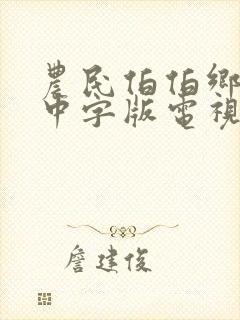 農民伯伯鄉
中字版電視
詹建俊